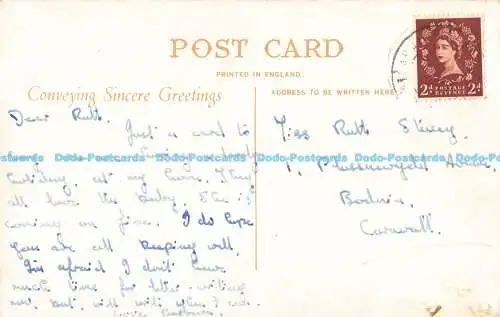 POST CARD
PRINTED IN ENGLAND
Conveying Sincere Greetings
ADDRESS TO BE WRITTEN HERE
2d POSTAGE REVENUE 2d
Dear Ruth.
Just a card to
Dodo-Postcards Dodo-Postcards Dodo-Postcards Dodo-Postcards Dodo-Postcards
holiday at my home. They
all love the baby. She is
coming on fine. I do hope
you are all keeping well.
I'm afraid I don't have
much time for letter writing
now, but will write when I can.
Miss Ruth
1,
Bodmin,
Cornwall.